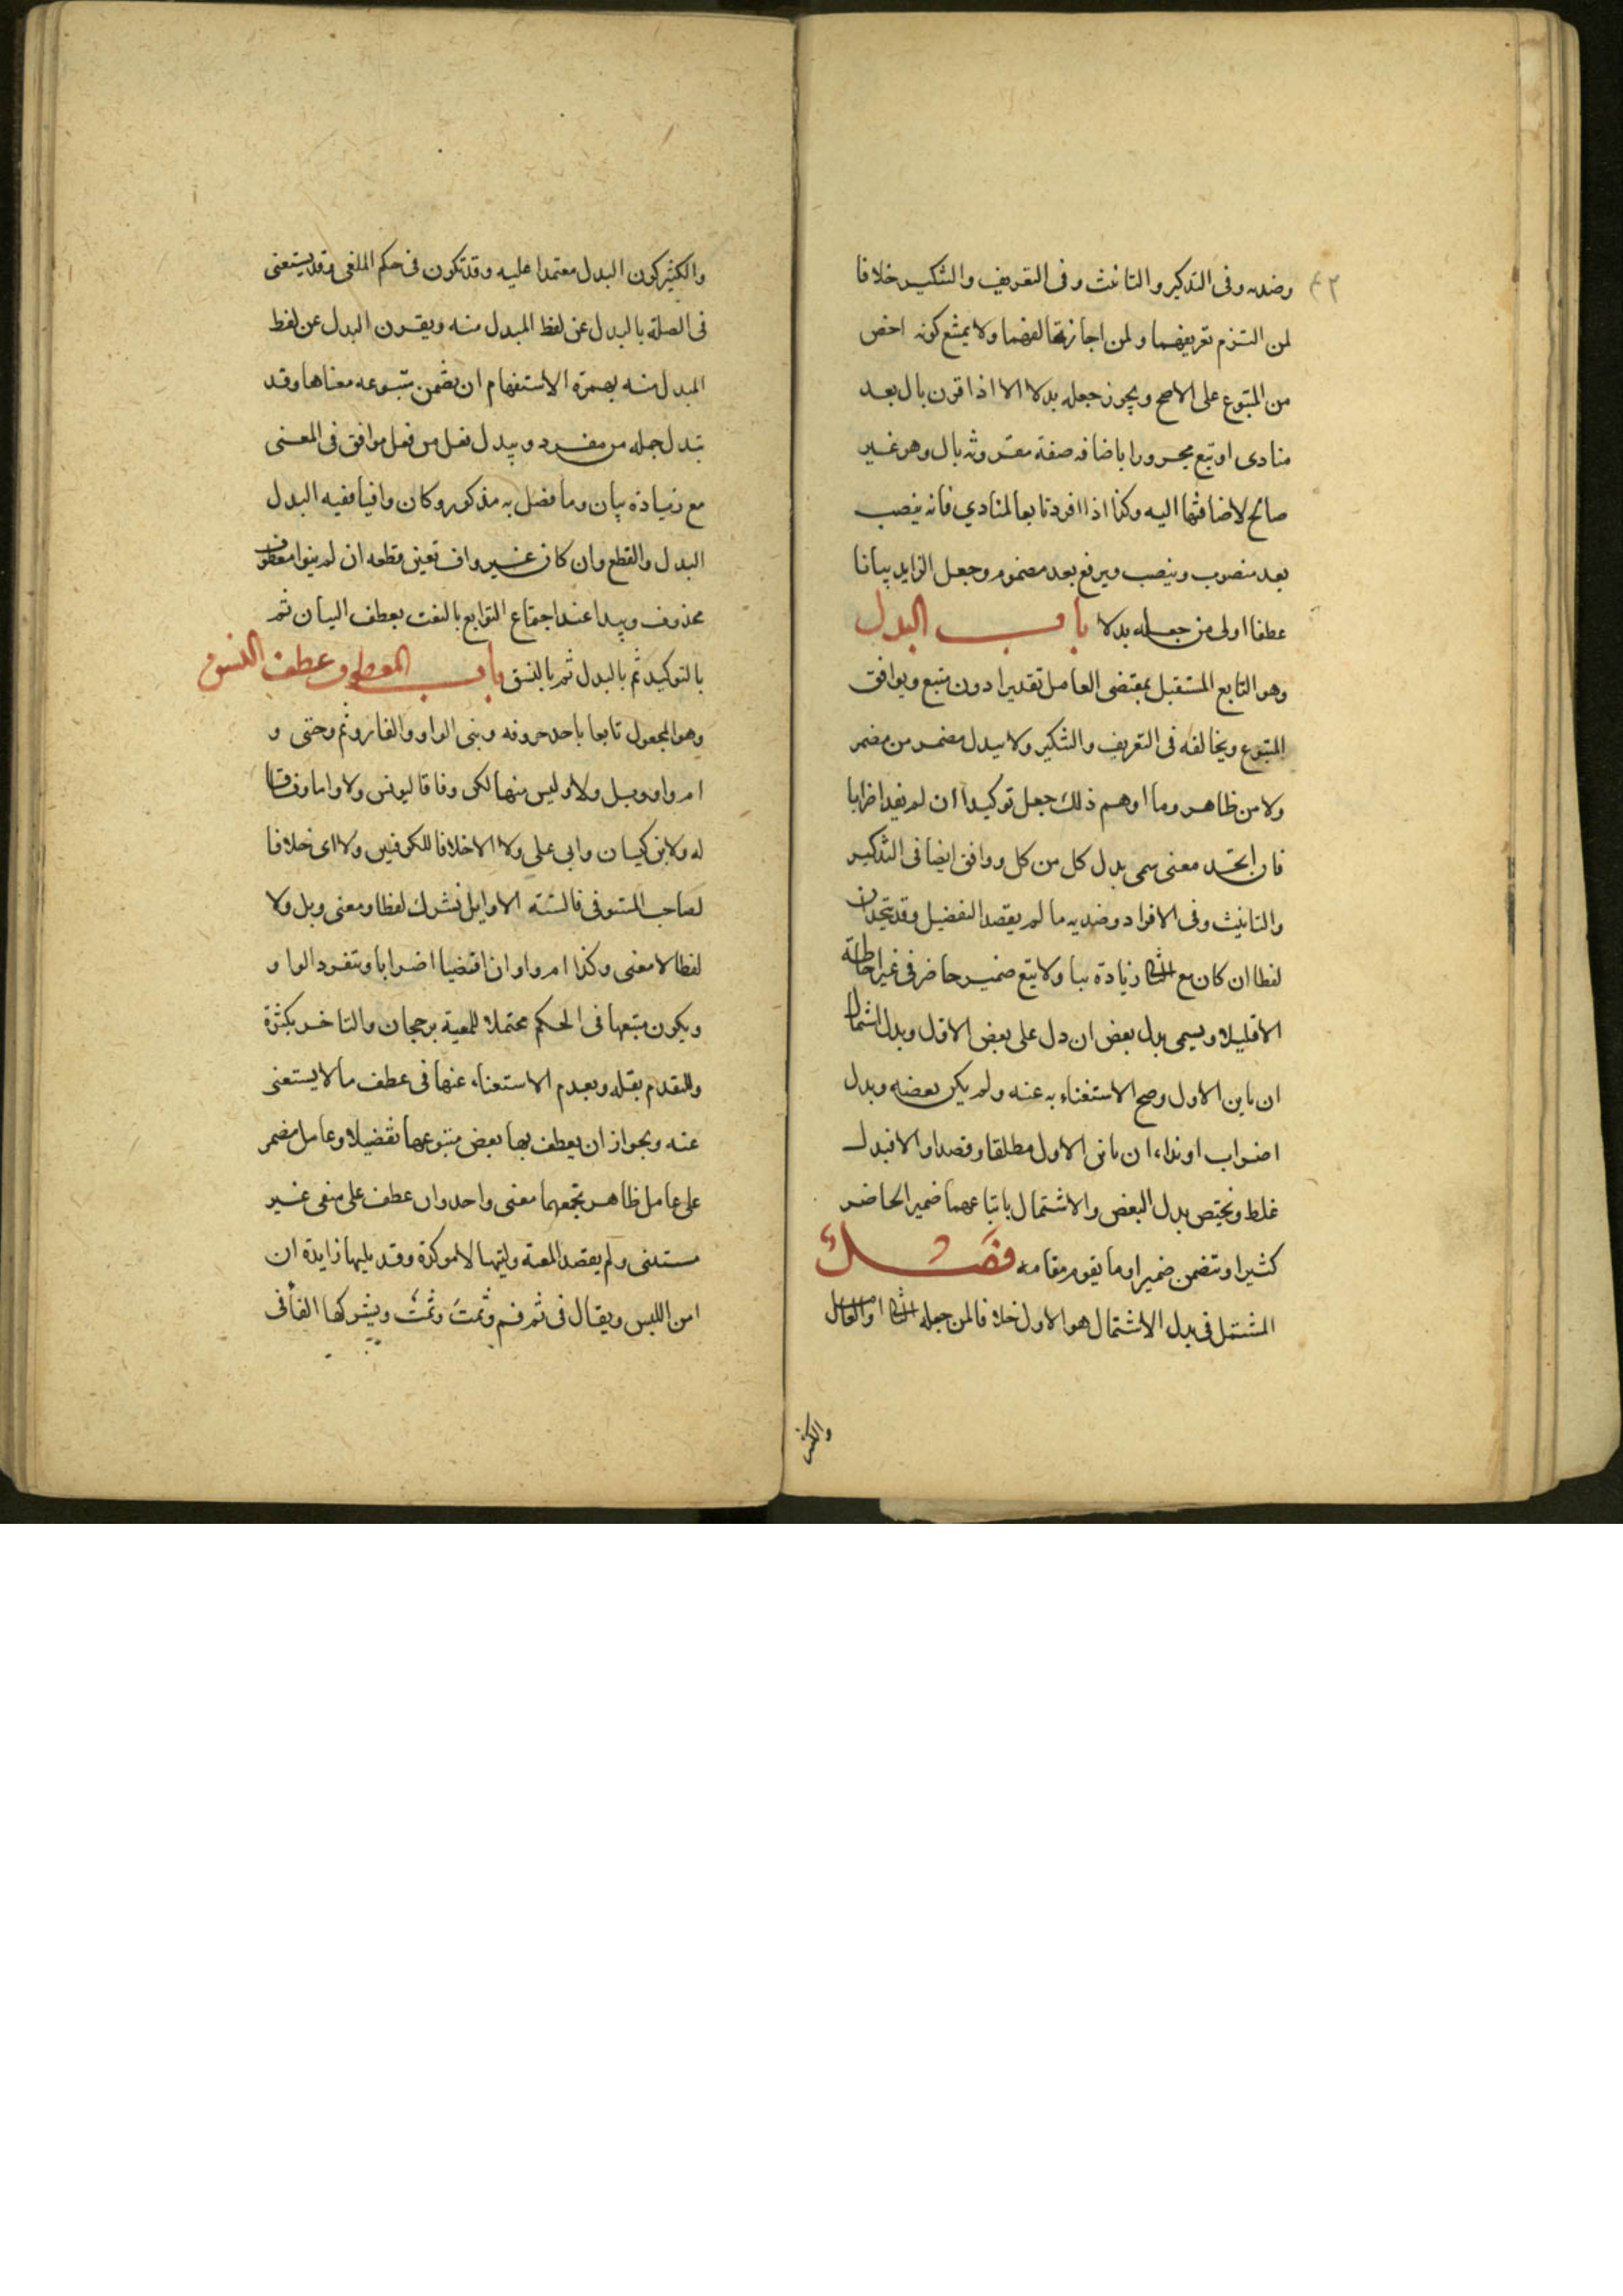 ٤٢
وضديه وفى التذكير والتانيث وفى التعريف والتنكير خلافا
لمن التزم تعريفهما ولمن اجاز تخالفهما ولا يمتنع كونه اخص
من المتبوع على الاصح ويجوز جعله بدلا الا اذا قرن بال بعد
منادى او تبع مجرورا باضافه صفة مقرونه بال وهو غير
صالح لاضافتها اليه وكذا اذا افرد تابعا لمنادي فانه ينصب
بعد منصوب وينصب ويرفع بعد مضموم وجعل الزايد بيانا
عطفا اولى من جعله بدلا باب البدل
وهو التابع المستقبل بمقتضى العامل تقديرا دون متبع ويوافق
المتبوع ويخالفه فى التعريف والتنكير ولا يبدل مضمر من مضمر
ولا من ظاهر وما اوهم ذلك جعل توكيدا ان لم يفد اضرابا
فان اتحد معنى سمى بدل كل من كل ووافق ايضا فى التذكير
والتانيث وفى الافراد وضديه ما لم يقصد التفضيل وقد يتحدان
لفظا ان كان مع الثانى زيادة بيا ولا يتبع ضمير حاضر فى غير احاطة
الا قليلا ويسمى بدل بعض ان دل على بعض الاول وبدل اشتمال
ان باين الاول وصح الاستغناء به عنه ولم يكن بعضه وبدل
اضراب او بداء ان باين الاول مطلقا وقصدا والا فبدل
غلط ويختص بدل البعض والاشتمال باتباعهما ضمير الحاضر
كثيرا وتضمن ضمير او ما يقوم مقامه فصل
المشتمل فى بدل الاشتمال هو الاول خلافا لمن جعله الثانى او العامل
والكثير
والكثير كون البدل معتمدا عليه وقد تكون فى حكم الملغى وقد يستغنى
فى الصلة بالبدل عن لفظ المبدل منه ويقرن البدل عن لفظ
المبدل منه بهمزة الاستفهام ان تضمن متبوعه معناها وقد
تبدل جمله من مفرد ويبدل فعل من فعل موافق فى المعنى
مع زيادة بيان وما فصل به مذكور وكان وافيا ففيه البدل
البدل والقطع وان كان غير واف تعين قطعه ان لم ينو معطوف
محذوف ويبدا عند اجتماع التوابع بالنعت بعطف البيان ثم
بالتوكيد ثم بالبدل ثم بالنسق باب المعطوف عطف النسق
وهو المجعول تابعا باحد حروفه وبنى الواو والفا وثم وحتى و
ام واو وبل ولا وليس منها لكن وفاقا ليونس ولا واما وفاقا
له ولابن كيسان وابى على ولا الا خلافا للكوفيين ولا اى خلافا
لصاحب المستوفى فالستة الاوايل تشرك لفظا ومعنى وبل ولا
لفظا لا معنى وكذا ام واو ان اقتضيا اضرابا وتنفرد الوا و
ويكون متبعها فى الحكم محتملا للمعية برجحان والتاخر بكثرة
وللتقدم بقله وبعدم الاستغناء عنها فى عطف ما لا يستغنى
عنه وبجواز ان يعطف بها بعض متبوعها تفضيلا وعامل مضمر
على عامل ظاهر يجمعهما معنى واحد وان عطف على منفى غير
مستثنى ولم يقصد المعية وليتها لا موكدة وقد يليها زايدة ان
امن اللبس ويقال فى ثم فم وثمت وثمت ويشركها الفا فى